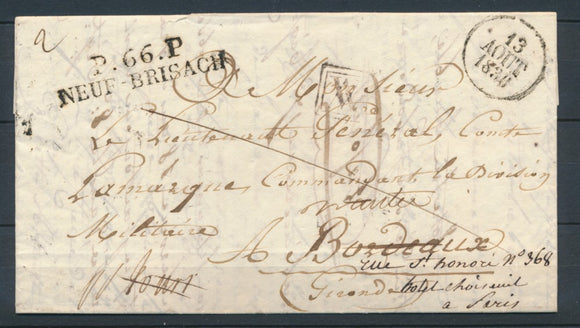 2
P. 66. P
NEUF-BRISACH
13
AOUT
1830
A Monsieur
Le Lieutenant Général, Comte
Lamarque, Commandant la Division
Militaire
A Bordeaux
rue St honoré N° 368
Gironde hotel choiseuil
a Paris